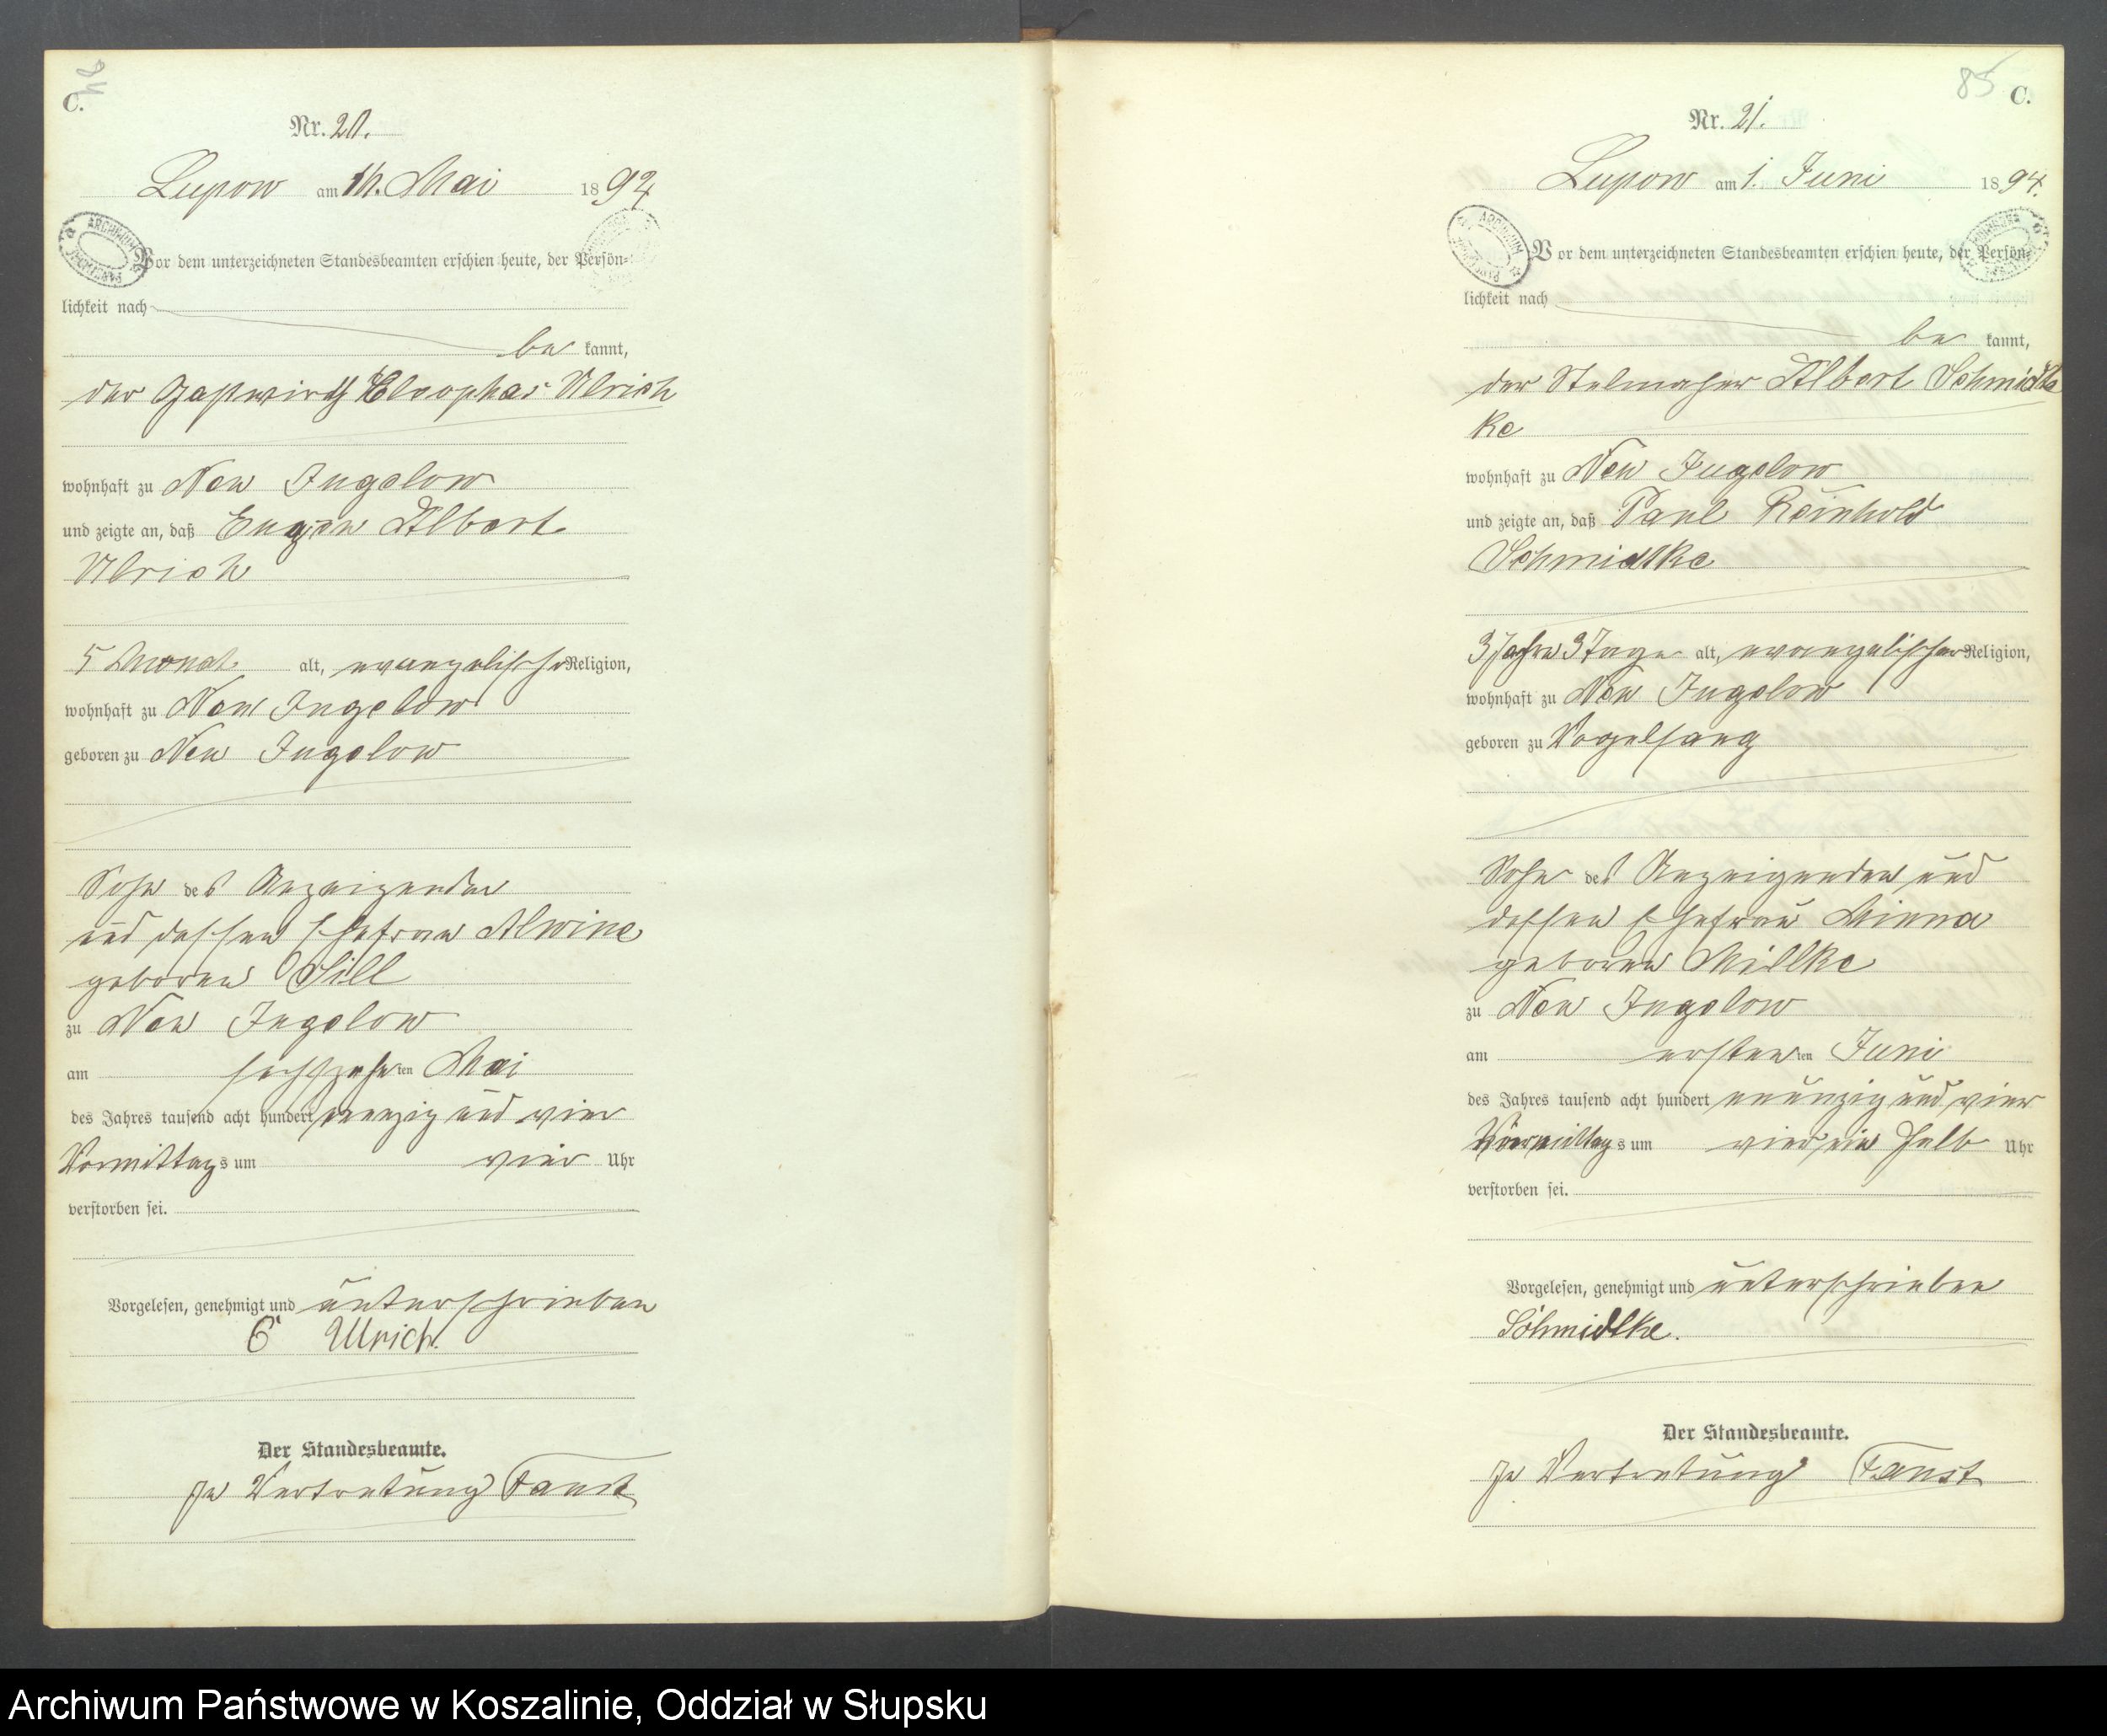 C.
Nr. 20.
Lupow am Mai 1894
ARCHIWUM
Vor dem unterzeichneten Standesbeamten erschien heute, der Persön-
lichkeit nach
be kannt,
der Gastwirth Cleophas Ulrich
wohnhaft zu Neu Jugelow
und zeigte an, daß Eugen Albert
Ulrich
5 Monat alt, evangelischer Religion,
wohnhaft zu Neu Jugelow
geboren zu Neu Jugelow
Sohn des Anzeigenden
und dessen Ehefrau Alwine
geboren Sill
zu Neu Jugelow
am sechszehnten Mai
des Jahres tausend acht hundert neunzig und vier
Vormittags um vier Uhr
verstorben sei.
Vorgelesen, genehmigt und unterschrieben
C Ulrich.
Der Standesbeamte.
In Vertretung Faust
85 C.
Nr. 21.
Lupow am 1. Juni 1894.
ARCHIWUM
Vor dem unterzeichneten Standesbeamten erschien heute, der Persön-
lichkeit nach
be kannt,
der Stelmacher Albert Schmidtke
ke
wohnhaft zu Neu Jugelow
und zeigte an, daß Paul Reinhold
Schmidtke
3 Jahre 3 Tage alt, evangelischer Religion,
wohnhaft zu Neu Jugelow
geboren zu Vogelsang
Sohn des Anzeigenden und
dessen Ehefrau Minna
geboren Millke
zu Neu Jugelow
am ersten ten Juni
des Jahres tausend acht hundert neunzig und vier
Vormittags um vier ein halb Uhr
verstorben sei.
Vorgelesen, genehmigt und unterschrieben
Schmidtke.
Der Standesbeamte.
In Vertretung Faust
Archiwum Państwowe w Koszalinie, Oddział w Słupsku